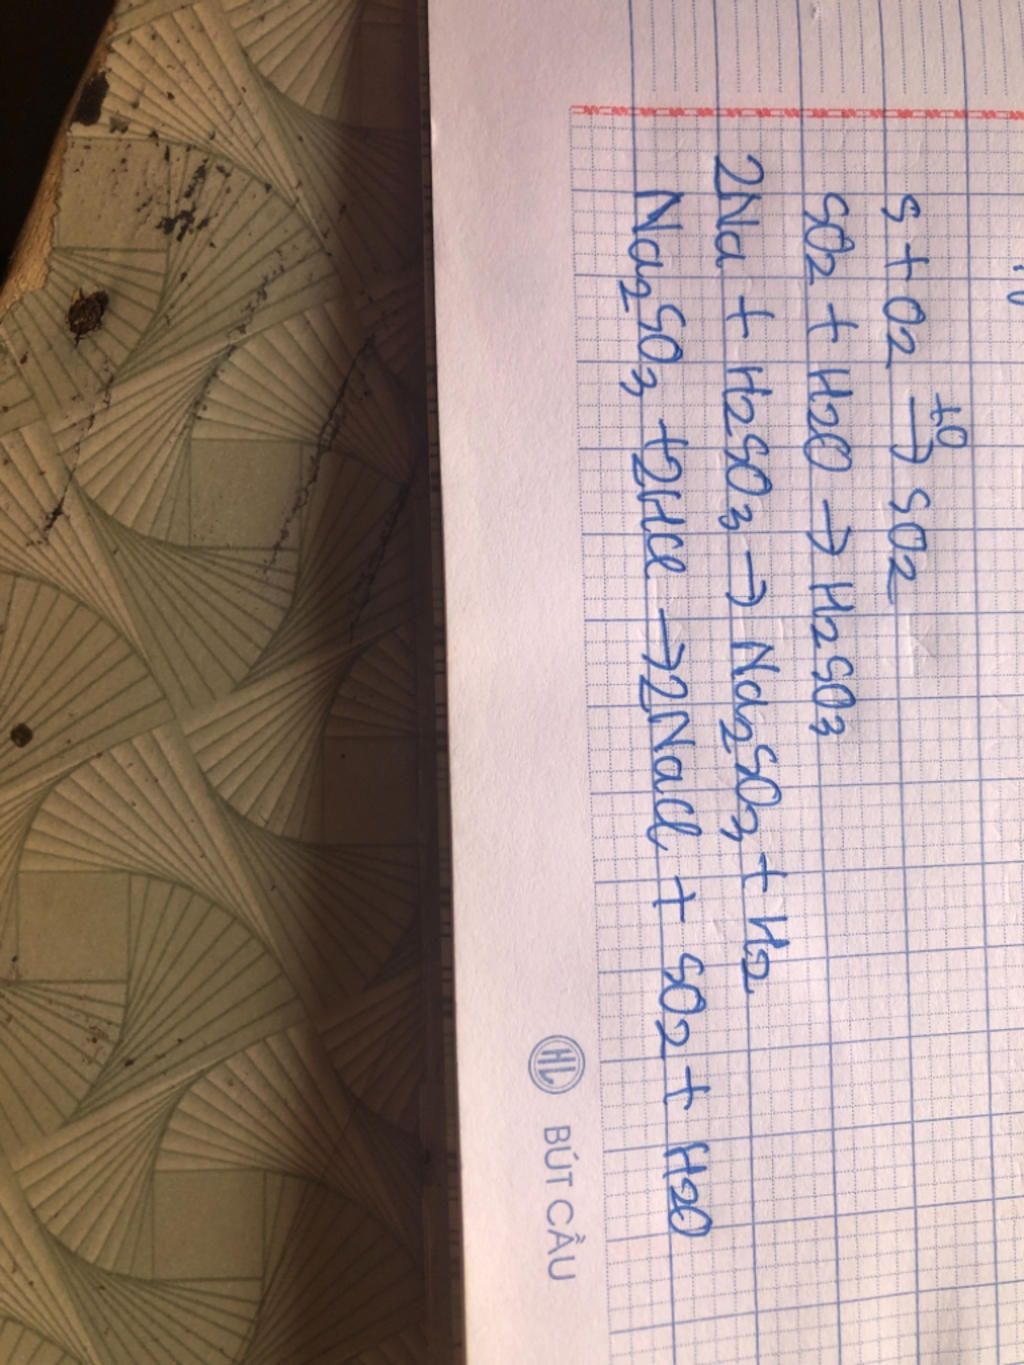 S + O2 t0→ SO2
SO2 + H2O → H2SO3
2Na + H2SO3 → Na2SO3 + H2
Na2SO3 + 2HCl → 2NaCl + SO2 + H2O
HL BÚT CẦU